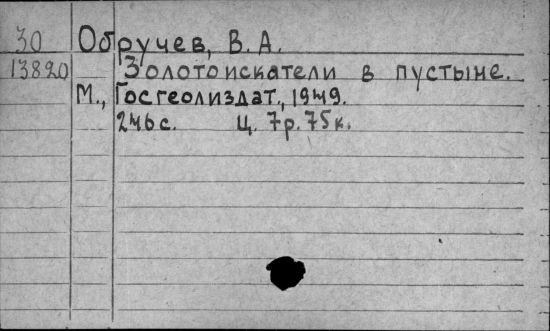 30 Обручев, В. А.
13820 Золотоискатели в пустыне.
М., Госгеолиздат., 1949.
246 с. Ц. 7р. 75к.